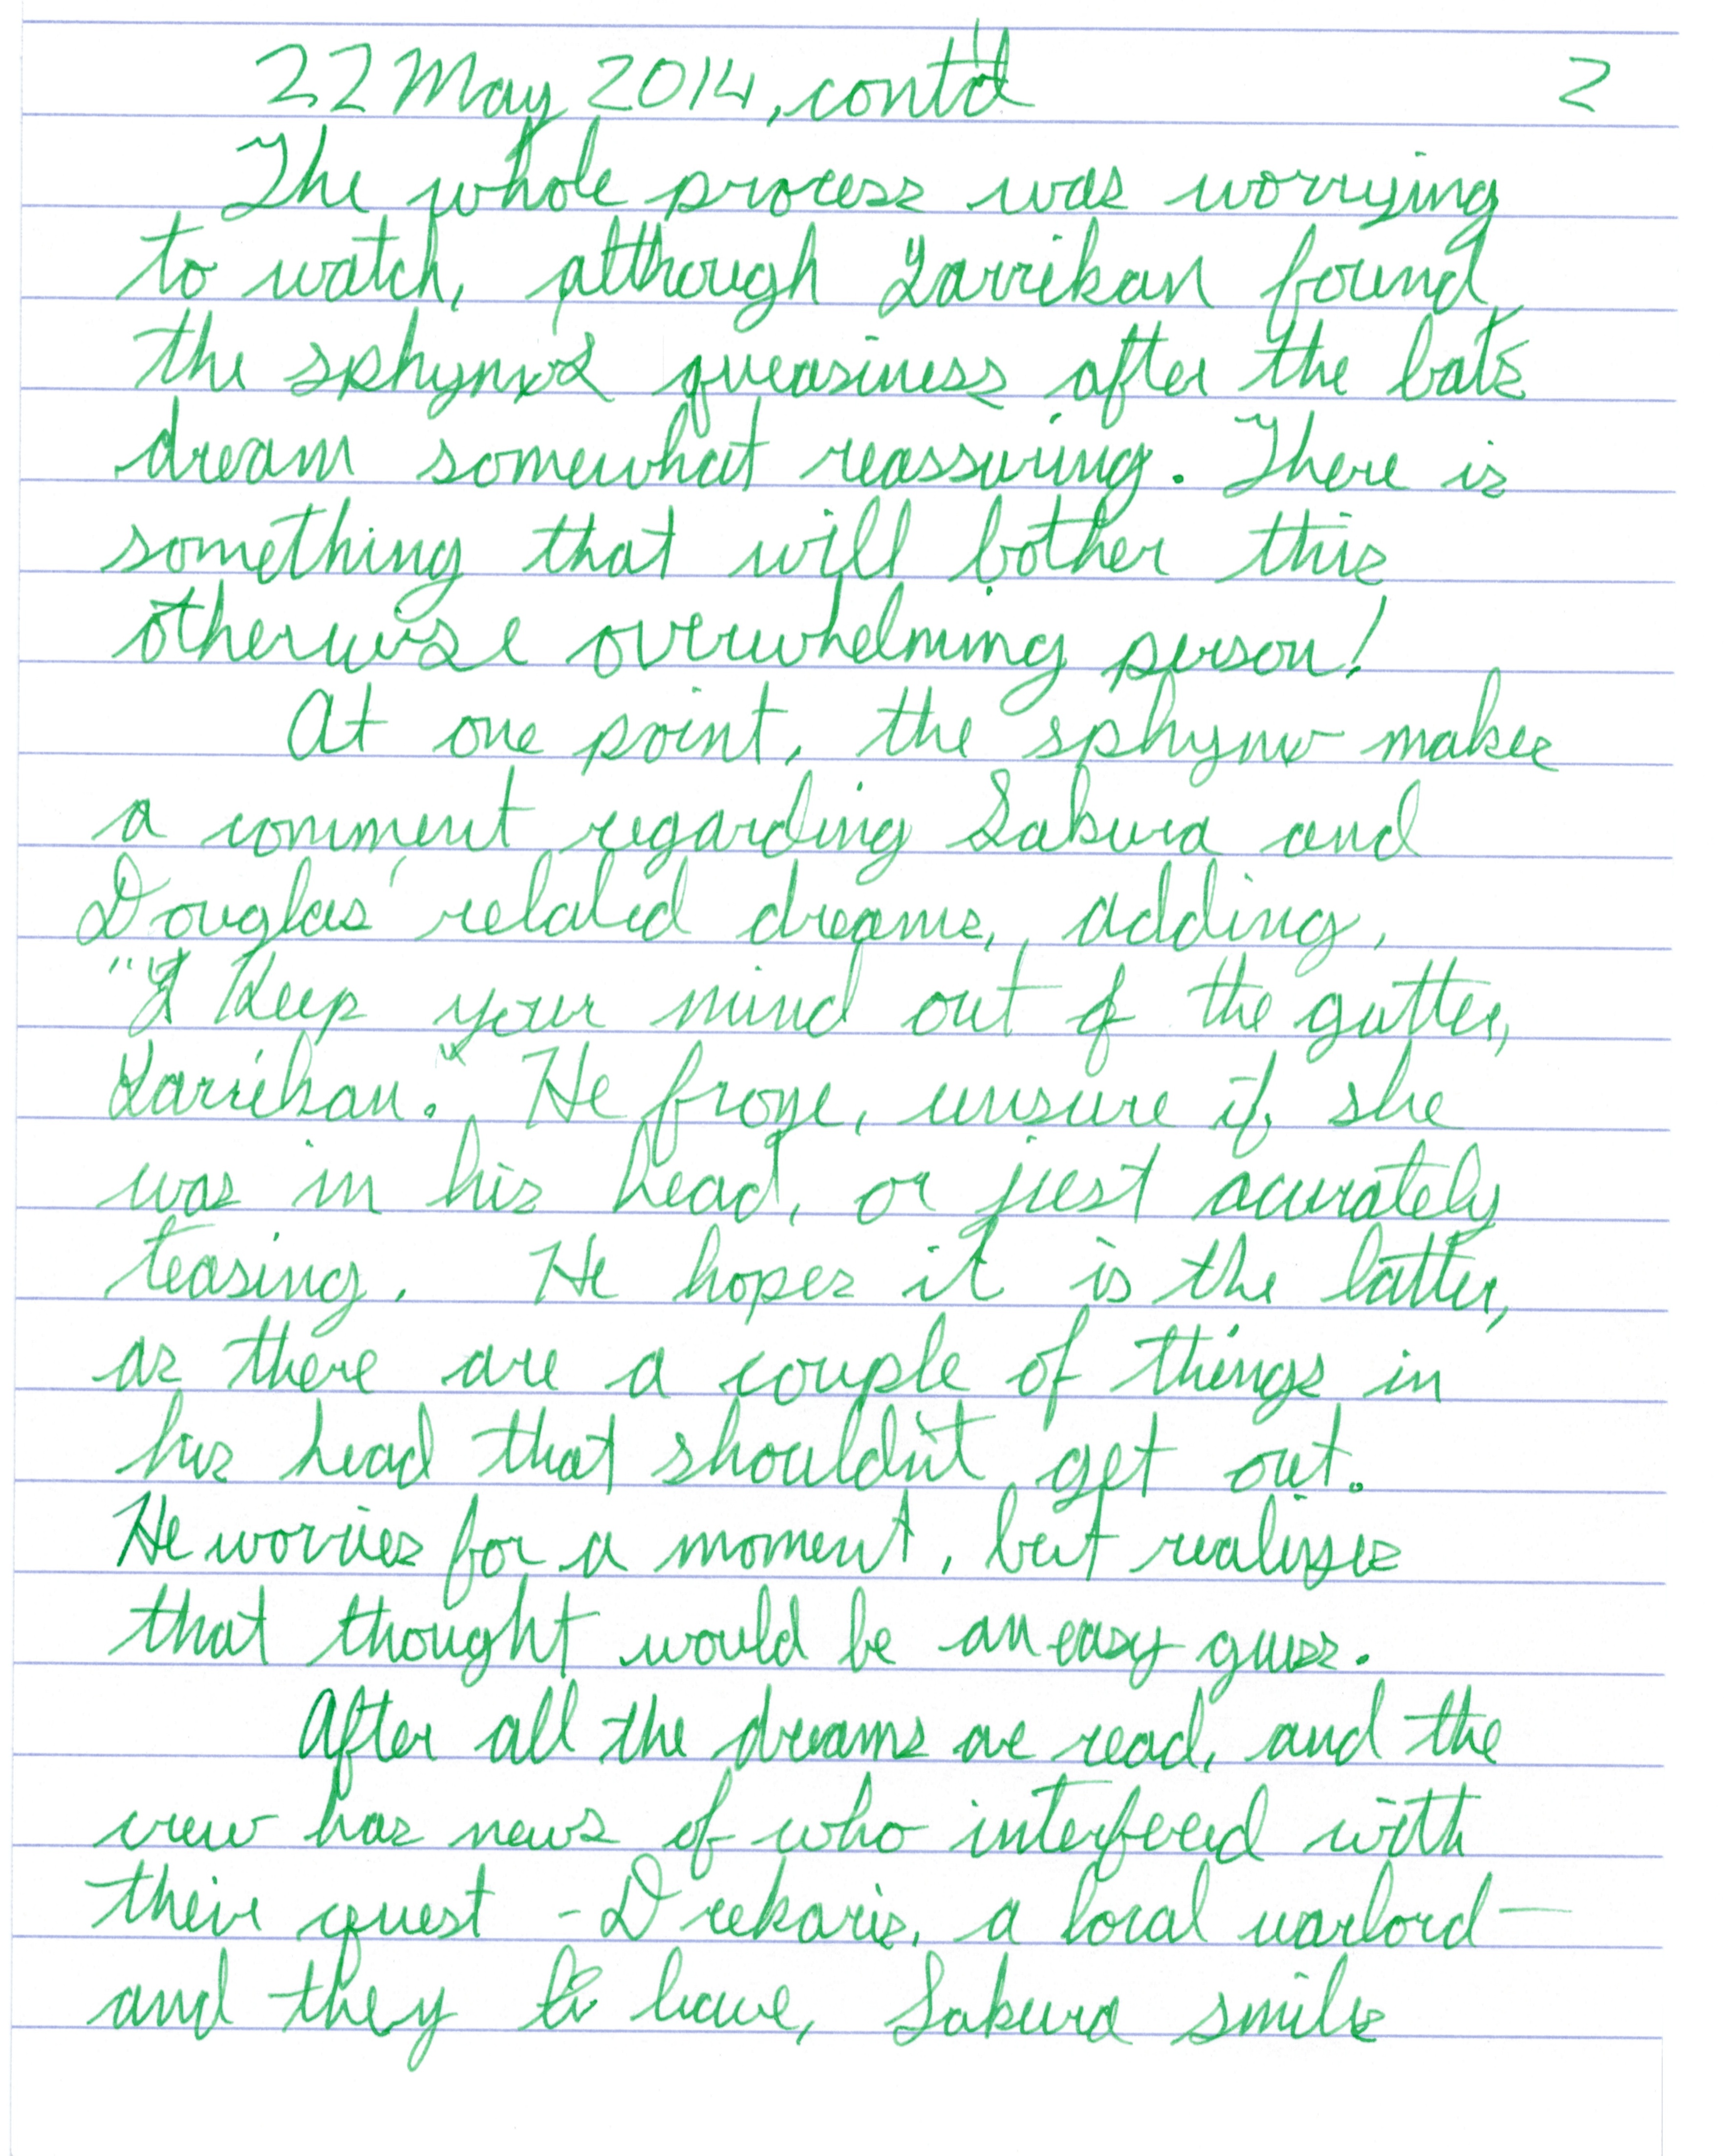 22 May 2014, cont'd 2
The whole process was worrying
to watch, although Zarrikan found
the sphynx's queasiness after the bat's
dream somewhat reassuring. There is
something that will bother this
otherwise overwhelming person!
At one point, the sphynx makes
a comment regarding Sakura and
Douglas' related dreams, adding,
"Keep your mind out of the gutter,
Zarrikan." He froze, unsure if she
was in his head, or just acurately
teasing. He hopes it is the latter,
as there are a couple of things in
his head that shouldn't get out.
He worries for a moment, but realizes
that thought would be an easy guess.
After all the dreams are read, and the
crew has news of who interfered with
their quest - Drekaris, a local warlord—
and they leave, Sakura smiles